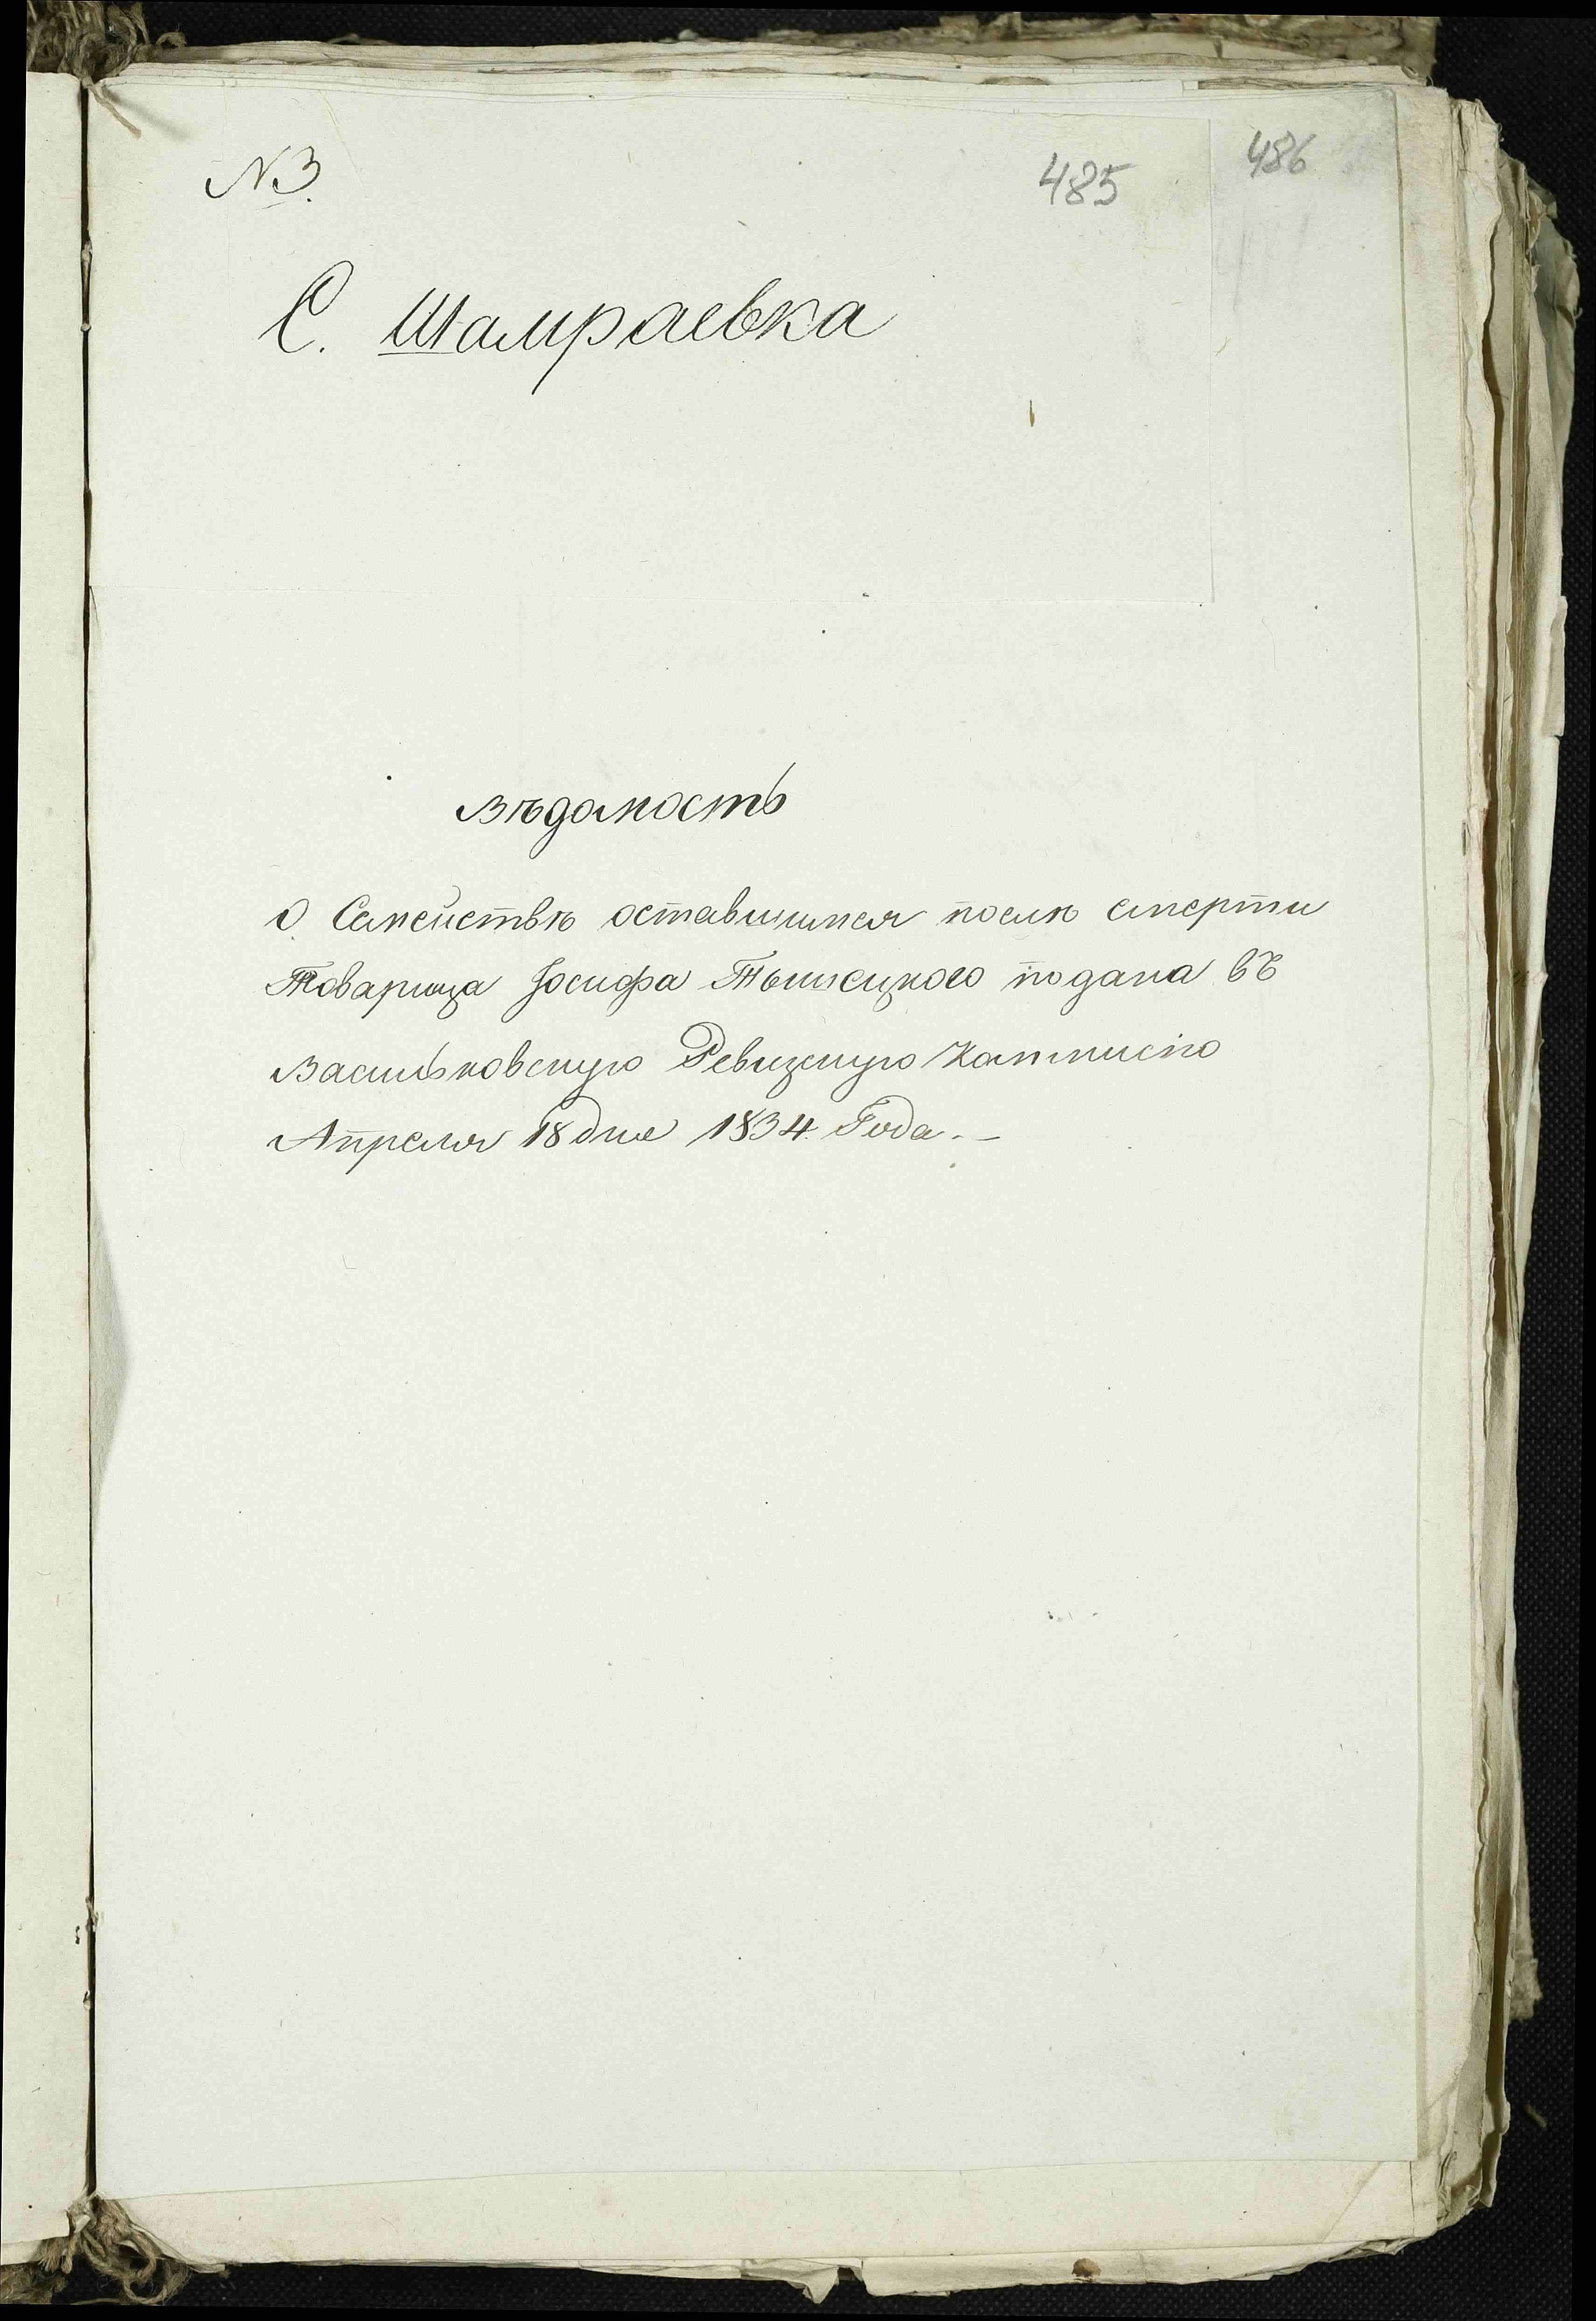 №3.
485
486
С. Шамраевка
Вѣдомость
О Семействѣ оставшимся послѣ смерти
Товарища Іосифа Тышецкого подана въ
Васильковскую Ревизскую Коммисію
Апреля 18 дня 1834. Года. –